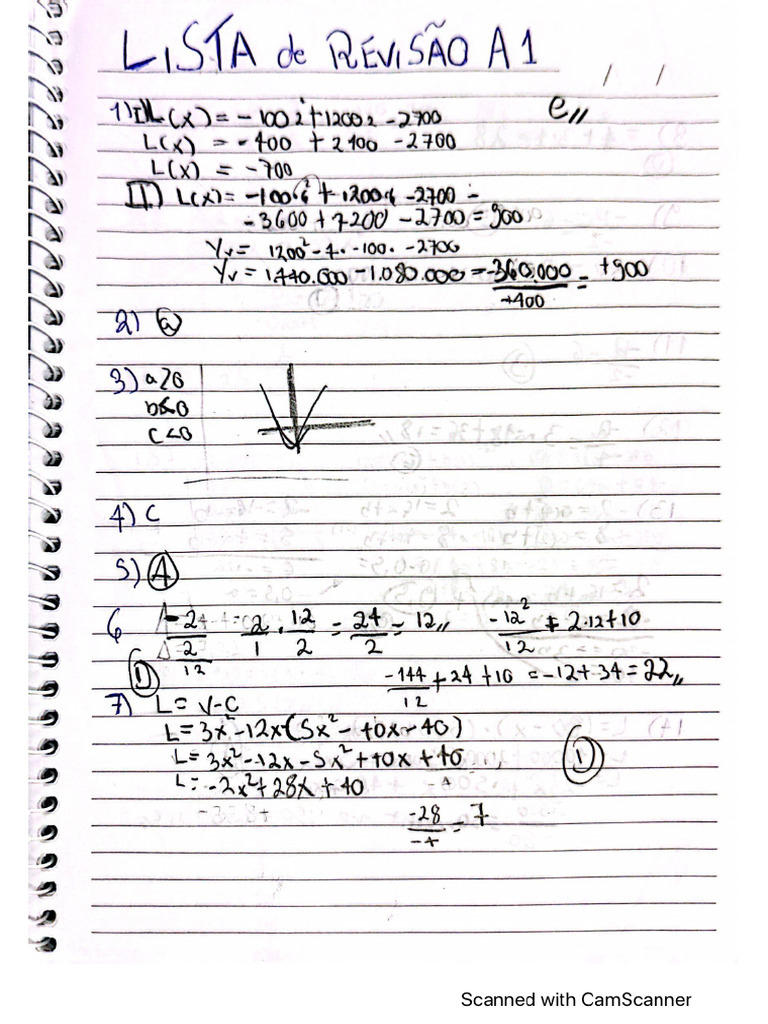 LISTA de REVISÃO A1
/ /
1) I) L(x) = -100 2² + 1200 2 - 2700 e,,
L(x) = -400 + 2400 - 2700
L(x) = -700
II) L(x) = -100·6² + 1200·6 - 2700 =
-3600 + 7200 - 2700 = 900
Yv = 1200² - 4 · -100 · -2700
Yv = 1.440.000 - 1.080.000 = -360.000/+400 = +900
2) a
3) a>0
b<0
c<0
4) C
5) A
6 -2/(2/12) 2/1 · 12/2 = 24/2 = 12,, -12²/12 + 2·12+10
D -144/12 + 24 + 10 = -12+34 = 22,,
7) L = V-C
L = 3x²-12x(5x²-40x-40)
L = 3x²-12x-5x²+40x+40 D
L = -2x²+28x+40
-28/-4 = 7
Scanned with CamScanner